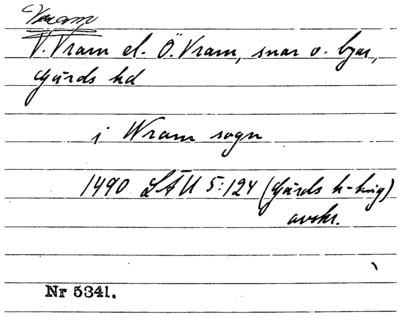 Vram
V. Vram el. Ö. Vram, snar o. byar,
Gärds hd
i Wram sogn
1490 LÄU 5:124 (Gärds h-ting)
avskr.
Nr 5341.